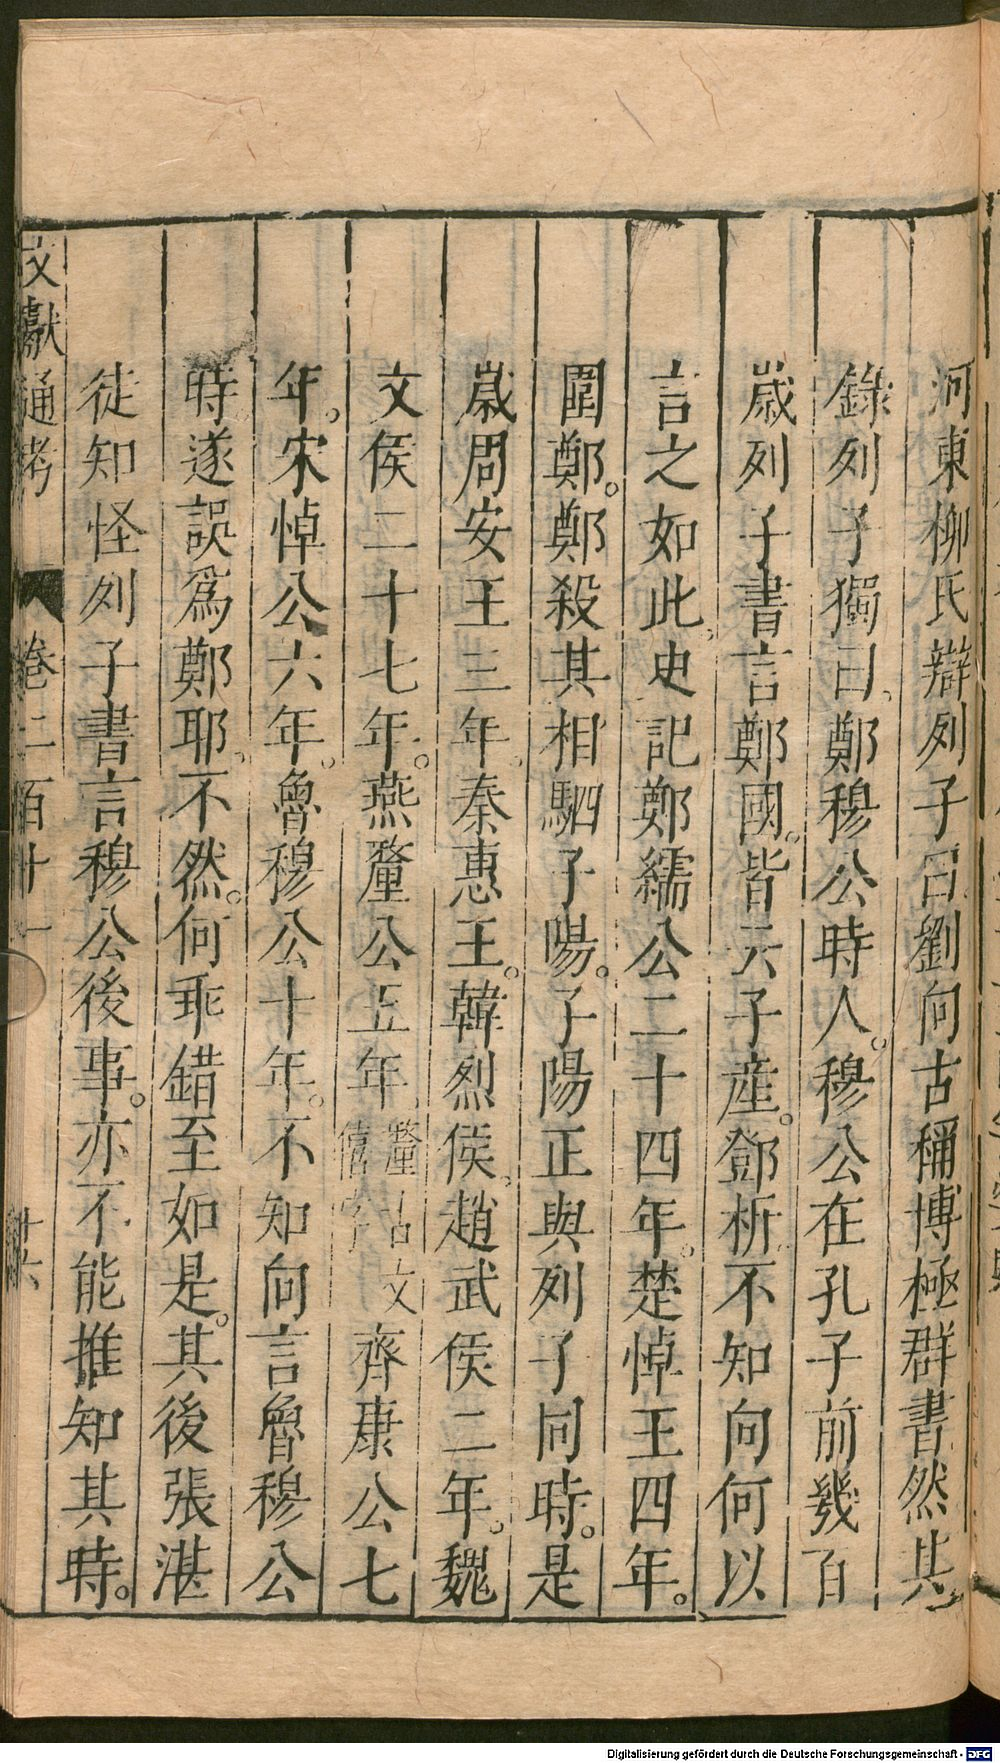 河東柳氏辯列子曰劉向古稱博極群書然其
錄列子獨曰鄭穆公時人。穆公在孔子前幾百
歲列子書言鄭國。皆云子產。鄧析不知向何以
言之如此。史記鄭繻公二十四年。楚悼王四年。
圍鄭。鄭殺其相駟子陽。子陽正與列子同時。是
歲周安王三年。秦惠王。韓烈侯。趙武侯二年。魏
文侯二十七年。燕釐公五年 釐古文僖字 齊康公七
年。宋悼公六年。魯穆公十年。不知向言魯穆公
時遂誤爲鄭耶。不然。何乖錯至如是。其後張湛
徒知怪列子書言穆公後事。亦不能推知其時。
文獻通考 卷二百十一 廿六
Digitalisierung gefördert durch die Deutsche Forschungsgemeinschaft - DFG